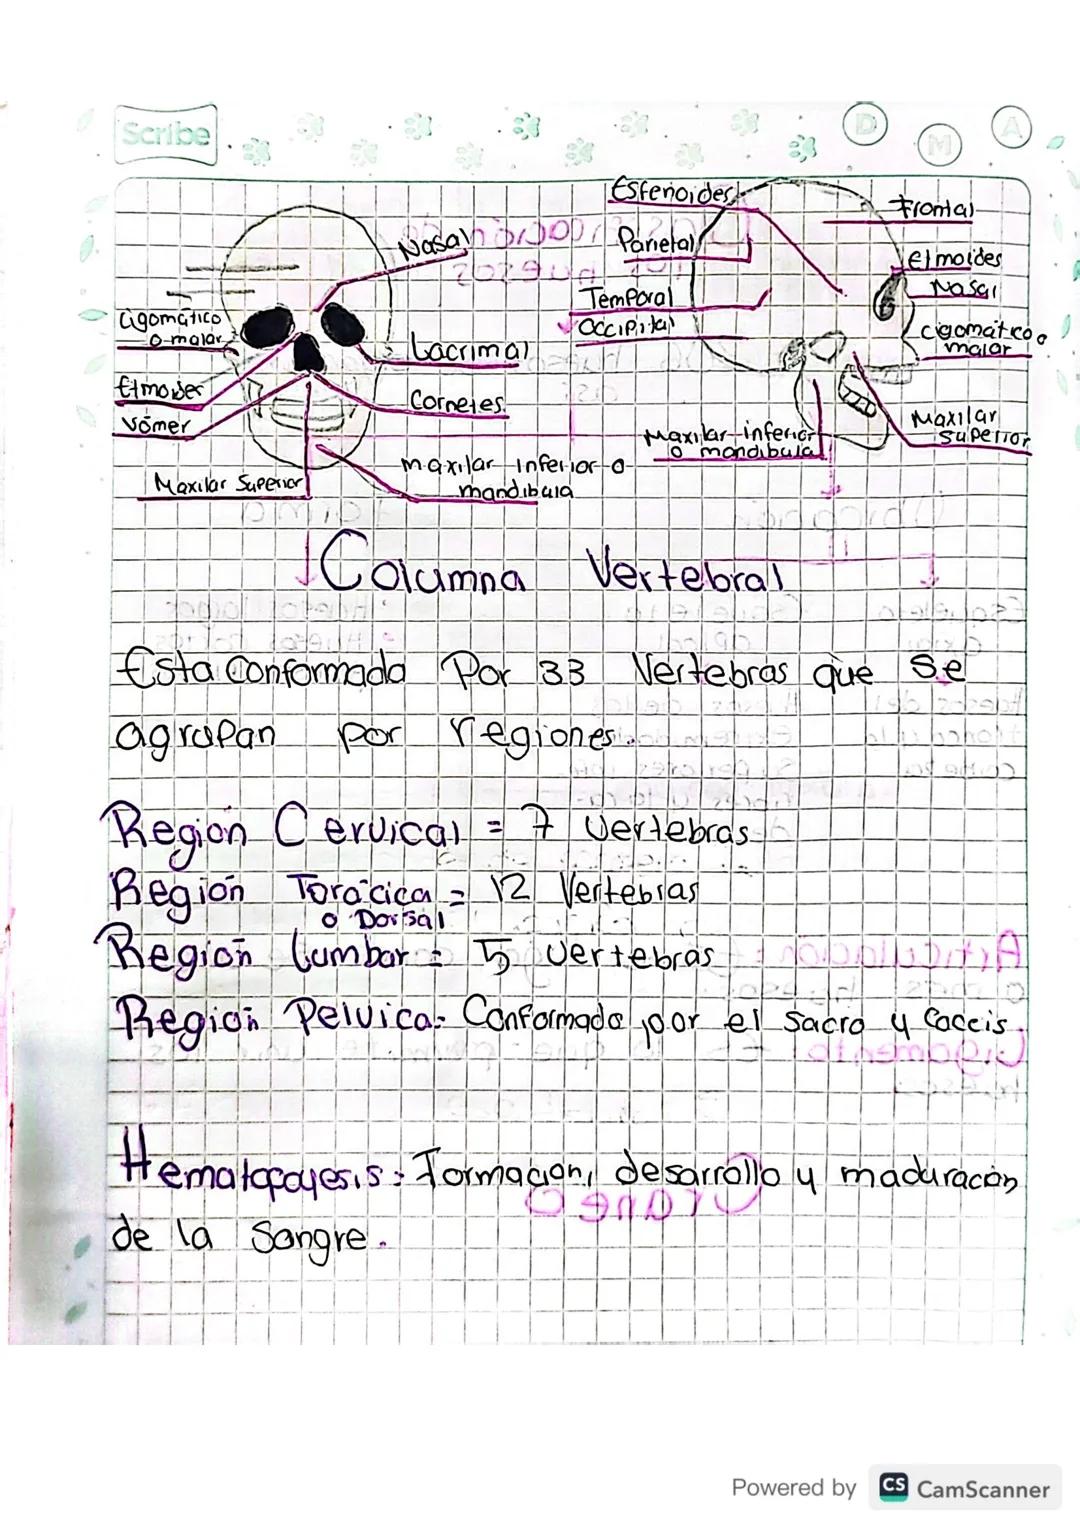 Scribe
D M A
Nasal
Cigomático
o malar
Etmoides
Vómer
Maxilar Superior
Lacrimal
Cornetes
maxilar inferior o
mandibula
Esfenoides
Parietal
Temporal
Occipital
Maxilar inferior
o mandibula
Frontal
etmoides
Nasal
cigomatico o
malar
Maxilar
superior
Columna Vertebral
Esta Conformada Por 33 Vertebras que se
agrupan por regiones.
Región Cervical = 7 vertebras
Región Torácica = 12 Vertebras
o Dorsal
Región lumbar = 5 vertebras
Región Pelvica = Conformada por el sacro y Coccis.
Hematopoyesis: Formación, desarrollo y maduración
de la sangre.
Powered by CS CamScanner